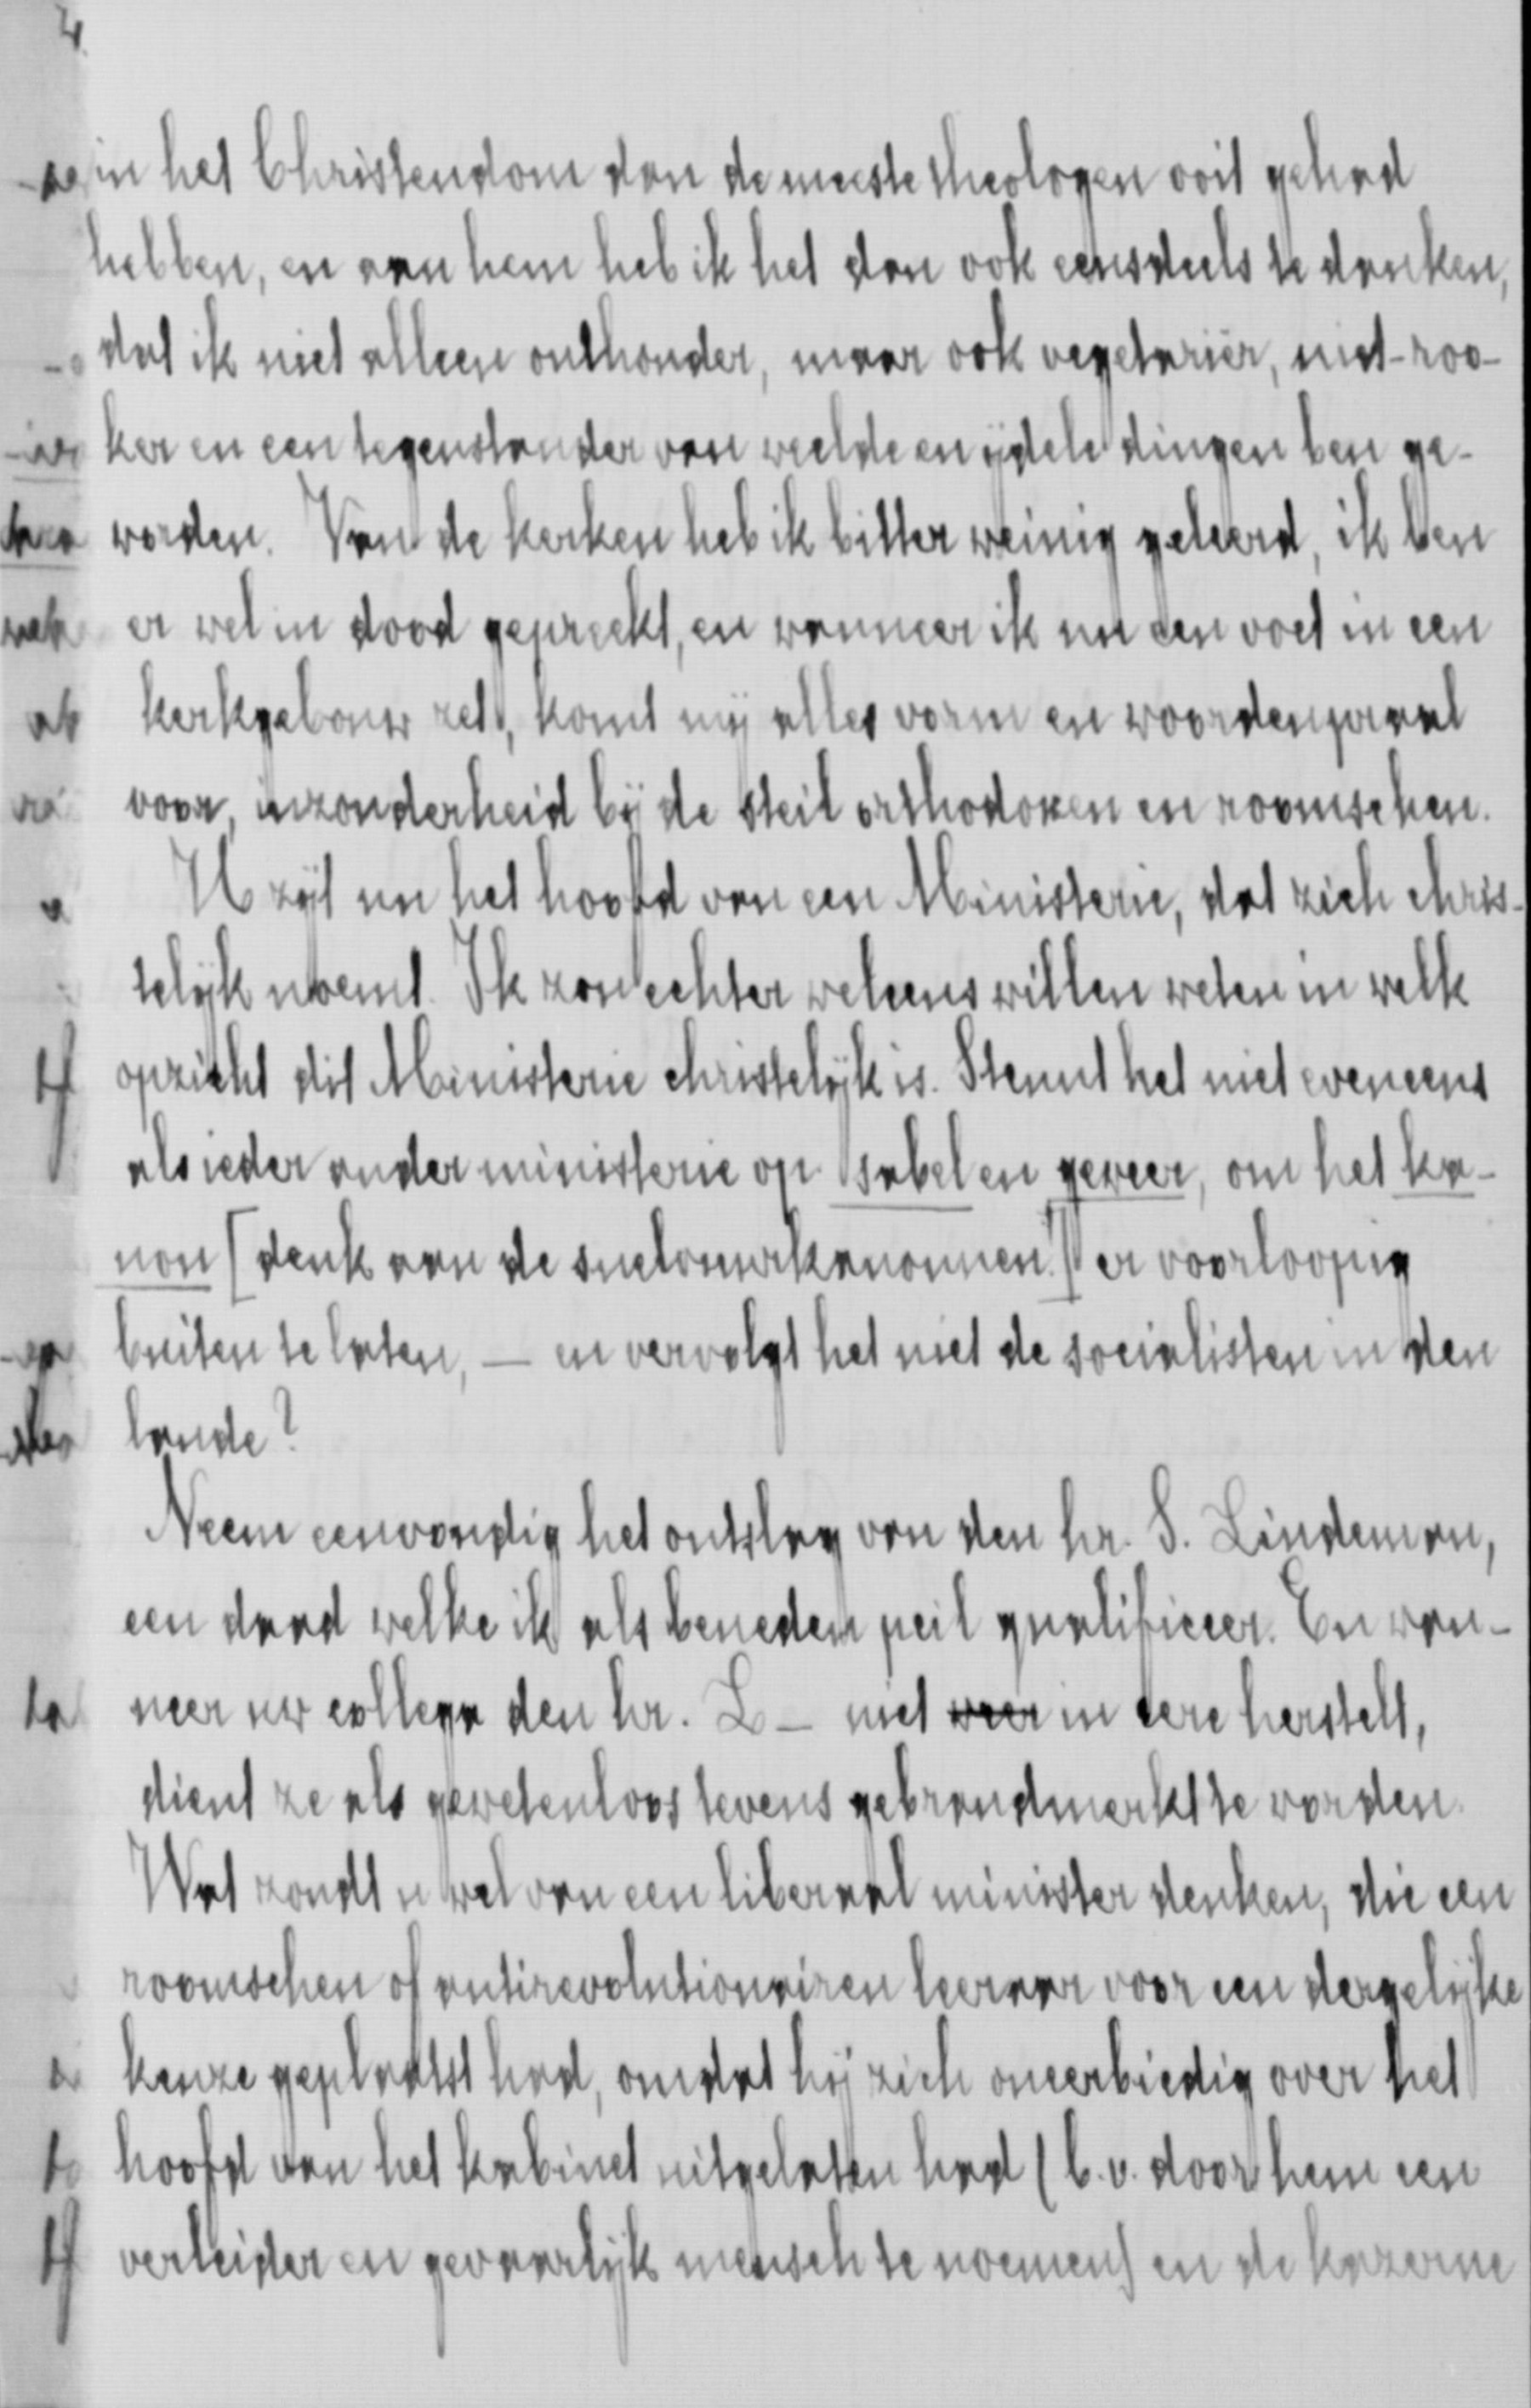 4.
in het Christendom dan de meeste theologen ooit gehad
hebben, en aan hem heb ik het dan ook eensdeels te danken,
dat ik niet alleen onthouder, maar ook vegetariër, niet-roo-
ker en een tegenstander van weelde en ijdele dingen ben ge-
worden. Van de kerken heb ik bitter weinig geleerd, ik ben
er wel in dood gepreekt, en wanneer ik nu een voet in een
kerkgebouw zet, komt mij alles vorm en woordenpraal
voor, inzonderheid bij de steil orthodoxen en roomschen.
U zijt nu het hoofd van een Ministerie, dat zich chris-
telijk noemt. Ik zou echter weleens willen weten in welk
opzicht dit Ministerie christelijk is. Steunt het niet eveneens
als ieder ander ministerie op sabel en geweer, om het ka-
non [denk aan de snelvuurkanonnen!] er voorloopig
buiten te laten, — en vervolgt het niet de socialisten in den
lande?
Neem eenvoudig het ontslag van den hr. S. Lindeman,
een daad welke ik als beneden peil qualificeer. En wan-
neer uw collega den hr. L— niet weer in eere herstelt,
dient ze als gewetenloos tevens gebrandmerkt te worden.
Wat zoudt u wel van een liberaal minister denken, die een
roomschen of antirevolutionairen leeraar voor een dergelijke
keuze geplaatst had, omdat hij zich oneerbiedig over het
hoofd van het kabinet uitgelaten had (b.v. door hem een
verleider en gevaarlijk mensch te noemen) en de kazerne